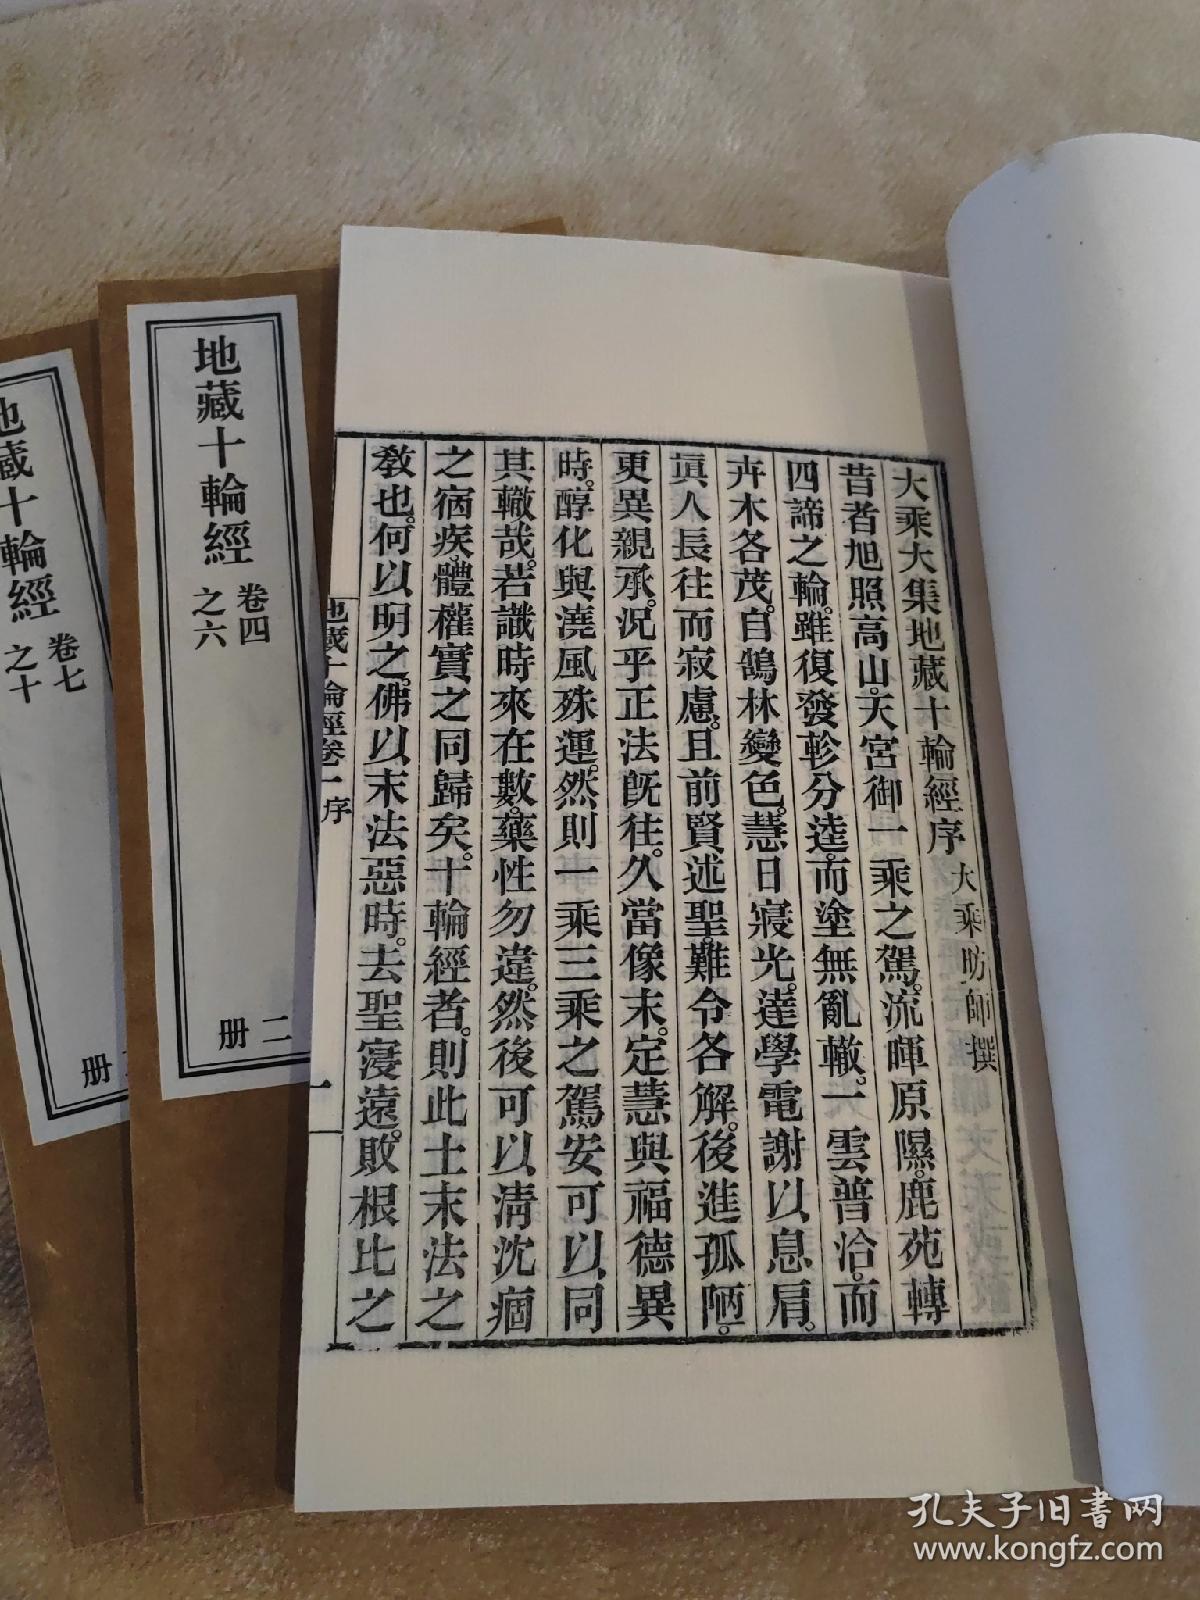 大乘大集地藏十輪經序 大乘昉師撰
昔者旭照高山。天宮御一乘之駕。流暉原隰。鹿苑轉
四諦之輪。雖復發軫分逵。而塗無亂轍。一雲普洽。而
卉木各茂。自鶴林變色。慧日寢光。達學電謝以息肩。
眞人長往而寂慮。且前賢述聖。難令各解。後進孤陋。
更異親承。況乎正法旣往。久當像末。定慧與福德異
時。醇化與澆風殊運。然則一乘三乘之駕安可以同
其轍哉。若識時來在數。藥性勿違。然後可以清沈痼
之宿疾。體權實之同歸矣。十輪經者。則此土末法之
敎也。何以明之。佛以末法惡時。去聖寖遠。敗根比之
地藏十輪經卷一 序
一
地藏十輪經
卷四
之六
二
册
地藏十輪經
卷七
之十
册
孔夫子旧书网
www.kongfz.com